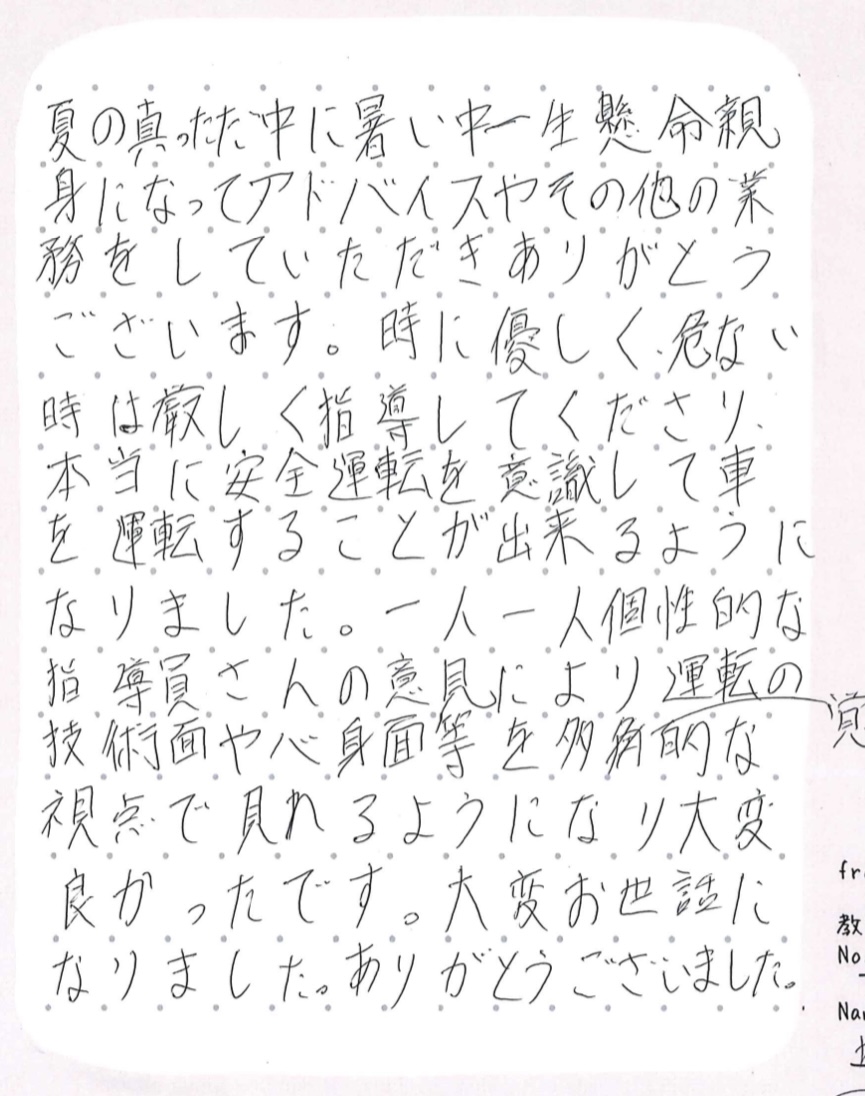 夏の真っただ中に暑い中一生懸命親
身になってアドバイスやその他の業
務をしていただきありがとう
ございます。時に優しく、危ない
時は厳しく指導してくださり、
本当に安全運転を意識して車
を運転することが出来るように
なりました。一人一人個性的な
指導員さんの意見により運転の
技術面や心身面等を多角的な
視点で見れるようになり大変
良かったです。大変お世話に
なりました。ありがとうございました。
教
No